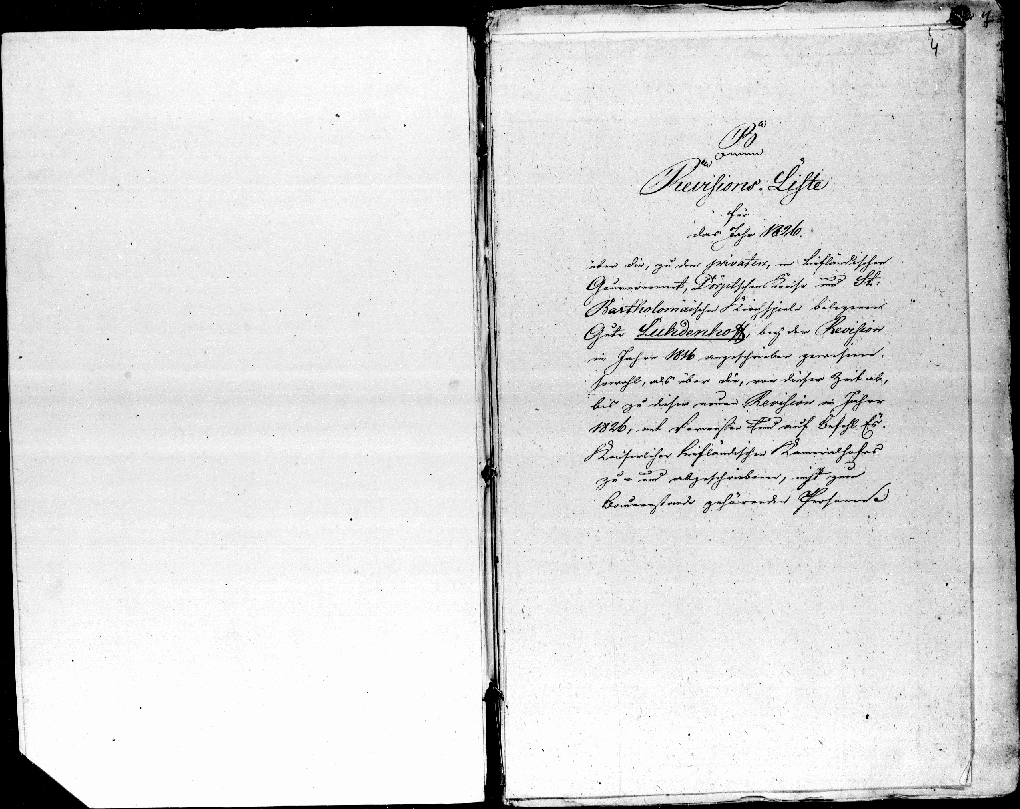 4
B
Revisions-Liste
für
das Jahr 1826.
über die, zu dem privaten, im Liefländischen
Gouvernement, Dörptschen Kreise und St:
Bartholomäischen Kirchspiele belegenen
Gute Luhdenhoff, bey der Revision
im Jahre 1816 angeschrieben gewesenen
sowohl, als über die, von dieser Zeit ab,
bis zu dieser neuen Revision im Jahre
1826, und auf Befehl Es.
Kaiserlichen Liefländischen Kameralhofes
zu- und abgeschriebenen, nicht zum
Bauernstande gehörenden Personen